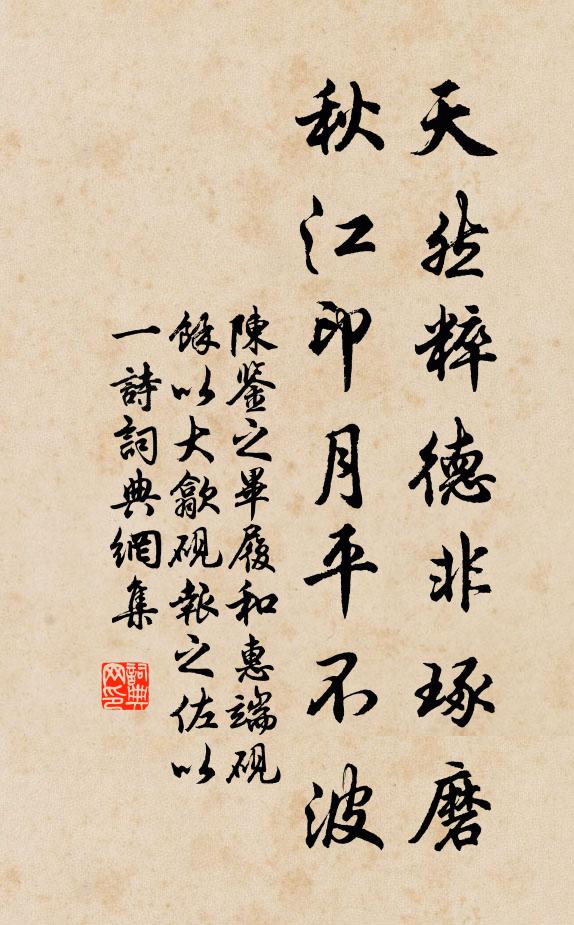 天然粹德非琢磨
秋江印月平不波
陳鑒之畢履和惠端硯
餘以大歙硯報之佐以
一詩詞典網集
詞典網印